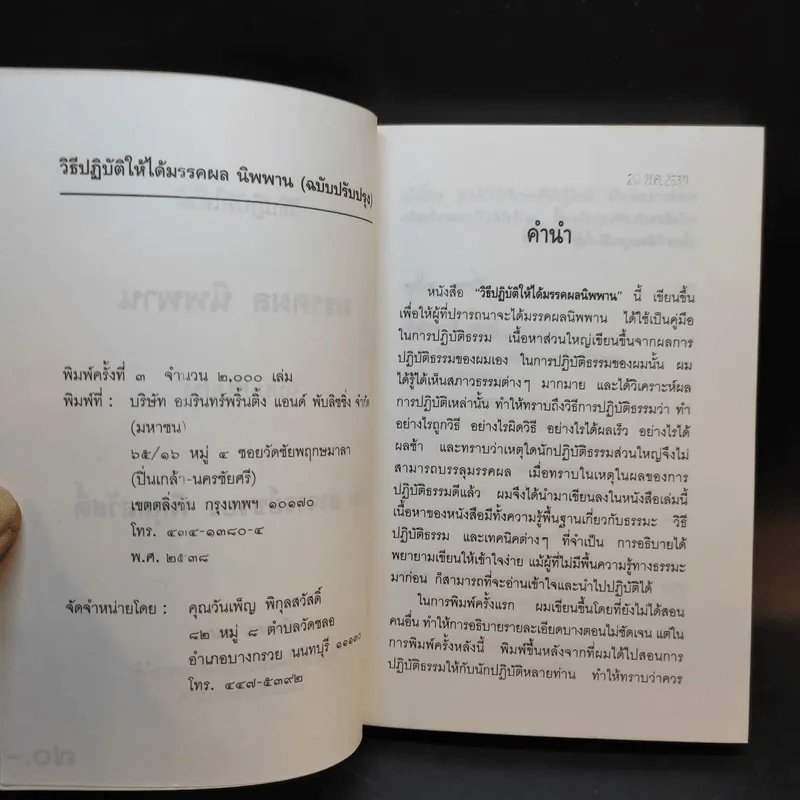 วิธีปฏิบัติให้ได้มรรคผล นิพพาน (ฉบับปรับปรุง)
พิมพ์ครั้งที่ ๓ จำนวน ๒,๐๐๐ เล่ม
พิมพ์ที่ : บริษัท อมรินทร์พริ้นติ้ง แอนด์ พับลิชชิ่ง จำกัด
(มหาชน)
๖๕/๑๖ หมู่ ๔ ซอยวัดชัยพฤกษมาลา
(ปิ่นเกล้า-นครชัยศรี)
เขตตลิ่งชัน กรุงเทพฯ ๑๐๑๗๐
โทร. ๔๓๔-๑๓๘๐-๔
พ.ศ. ๒๕๓๘
จัดจำหน่ายโดย : คุณวันเพ็ญ พิกุลสวัสดิ์
๘๒ หมู่ ๘ ตำบลวัดชลอ
อำเภอบางกรวย นนทบุรี ๑๑๑๓๐
โทร. ๔๔๗-๕๓๙๒
คำนำ
หนังสือ "วิธีปฏิบัติให้ได้มรรคผลนิพพาน" นี้ เขียนขึ้น
เพื่อให้ผู้ที่ปรารถนาจะได้มรรคผลนิพพาน ได้ใช้เป็นคู่มือ
ในการปฏิบัติธรรม เนื้อหาส่วนใหญ่เขียนขึ้นจากผลการ
ปฏิบัติธรรมของผมเอง ในการปฏิบัติธรรมของผมนั้น ผม
ได้รู้ได้เห็นสภาวธรรมต่างๆ มากมาย และได้วิเคราะห์ผล
การปฏิบัติเหล่านั้น ทำให้ทราบถึงวิธีการปฏิบัติธรรมว่า ทำ
อย่างไรถูกวิธี อย่างไรผิดวิธี อย่างไรได้ผลเร็ว อย่างไรได้
ผลช้า และทราบว่าเหตุใดนักปฏิบัติธรรมส่วนใหญ่จึงไม่
สามารถบรรลุมรรคผล เมื่อทราบในเหตุในผลของการ
ปฏิบัติธรรมดีแล้ว ผมจึงได้นำมาเขียนลงในหนังสือเล่มนี้
เนื้อหาของหนังสือมีทั้งความรู้พื้นฐานเกี่ยวกับธรรมะ วิธี
ปฏิบัติธรรม และเทคนิคต่างๆ ที่จำเป็น การอธิบายได้
พยายามเขียนให้เข้าใจง่าย แม้ผู้ที่ไม่มีพื้นความรู้ทางธรรมะ
มาก่อน ก็สามารถที่จะอ่านเข้าใจและนำไปปฏิบัติได้
ในการพิมพ์ครั้งแรก ผมเขียนขึ้นโดยที่ยังไม่ได้สอน
คนอื่น ทำให้การอธิบายรายละเอียดบางตอนไม่ชัดเจน แต่ใน
การพิมพ์ครั้งหลังนี้ พิมพ์ขึ้นหลังจากที่ผมได้ไปสอนการ
ปฏิบัติธรรมให้กับนักปฏิบัติหลายท่าน ทำให้ทราบว่าควร